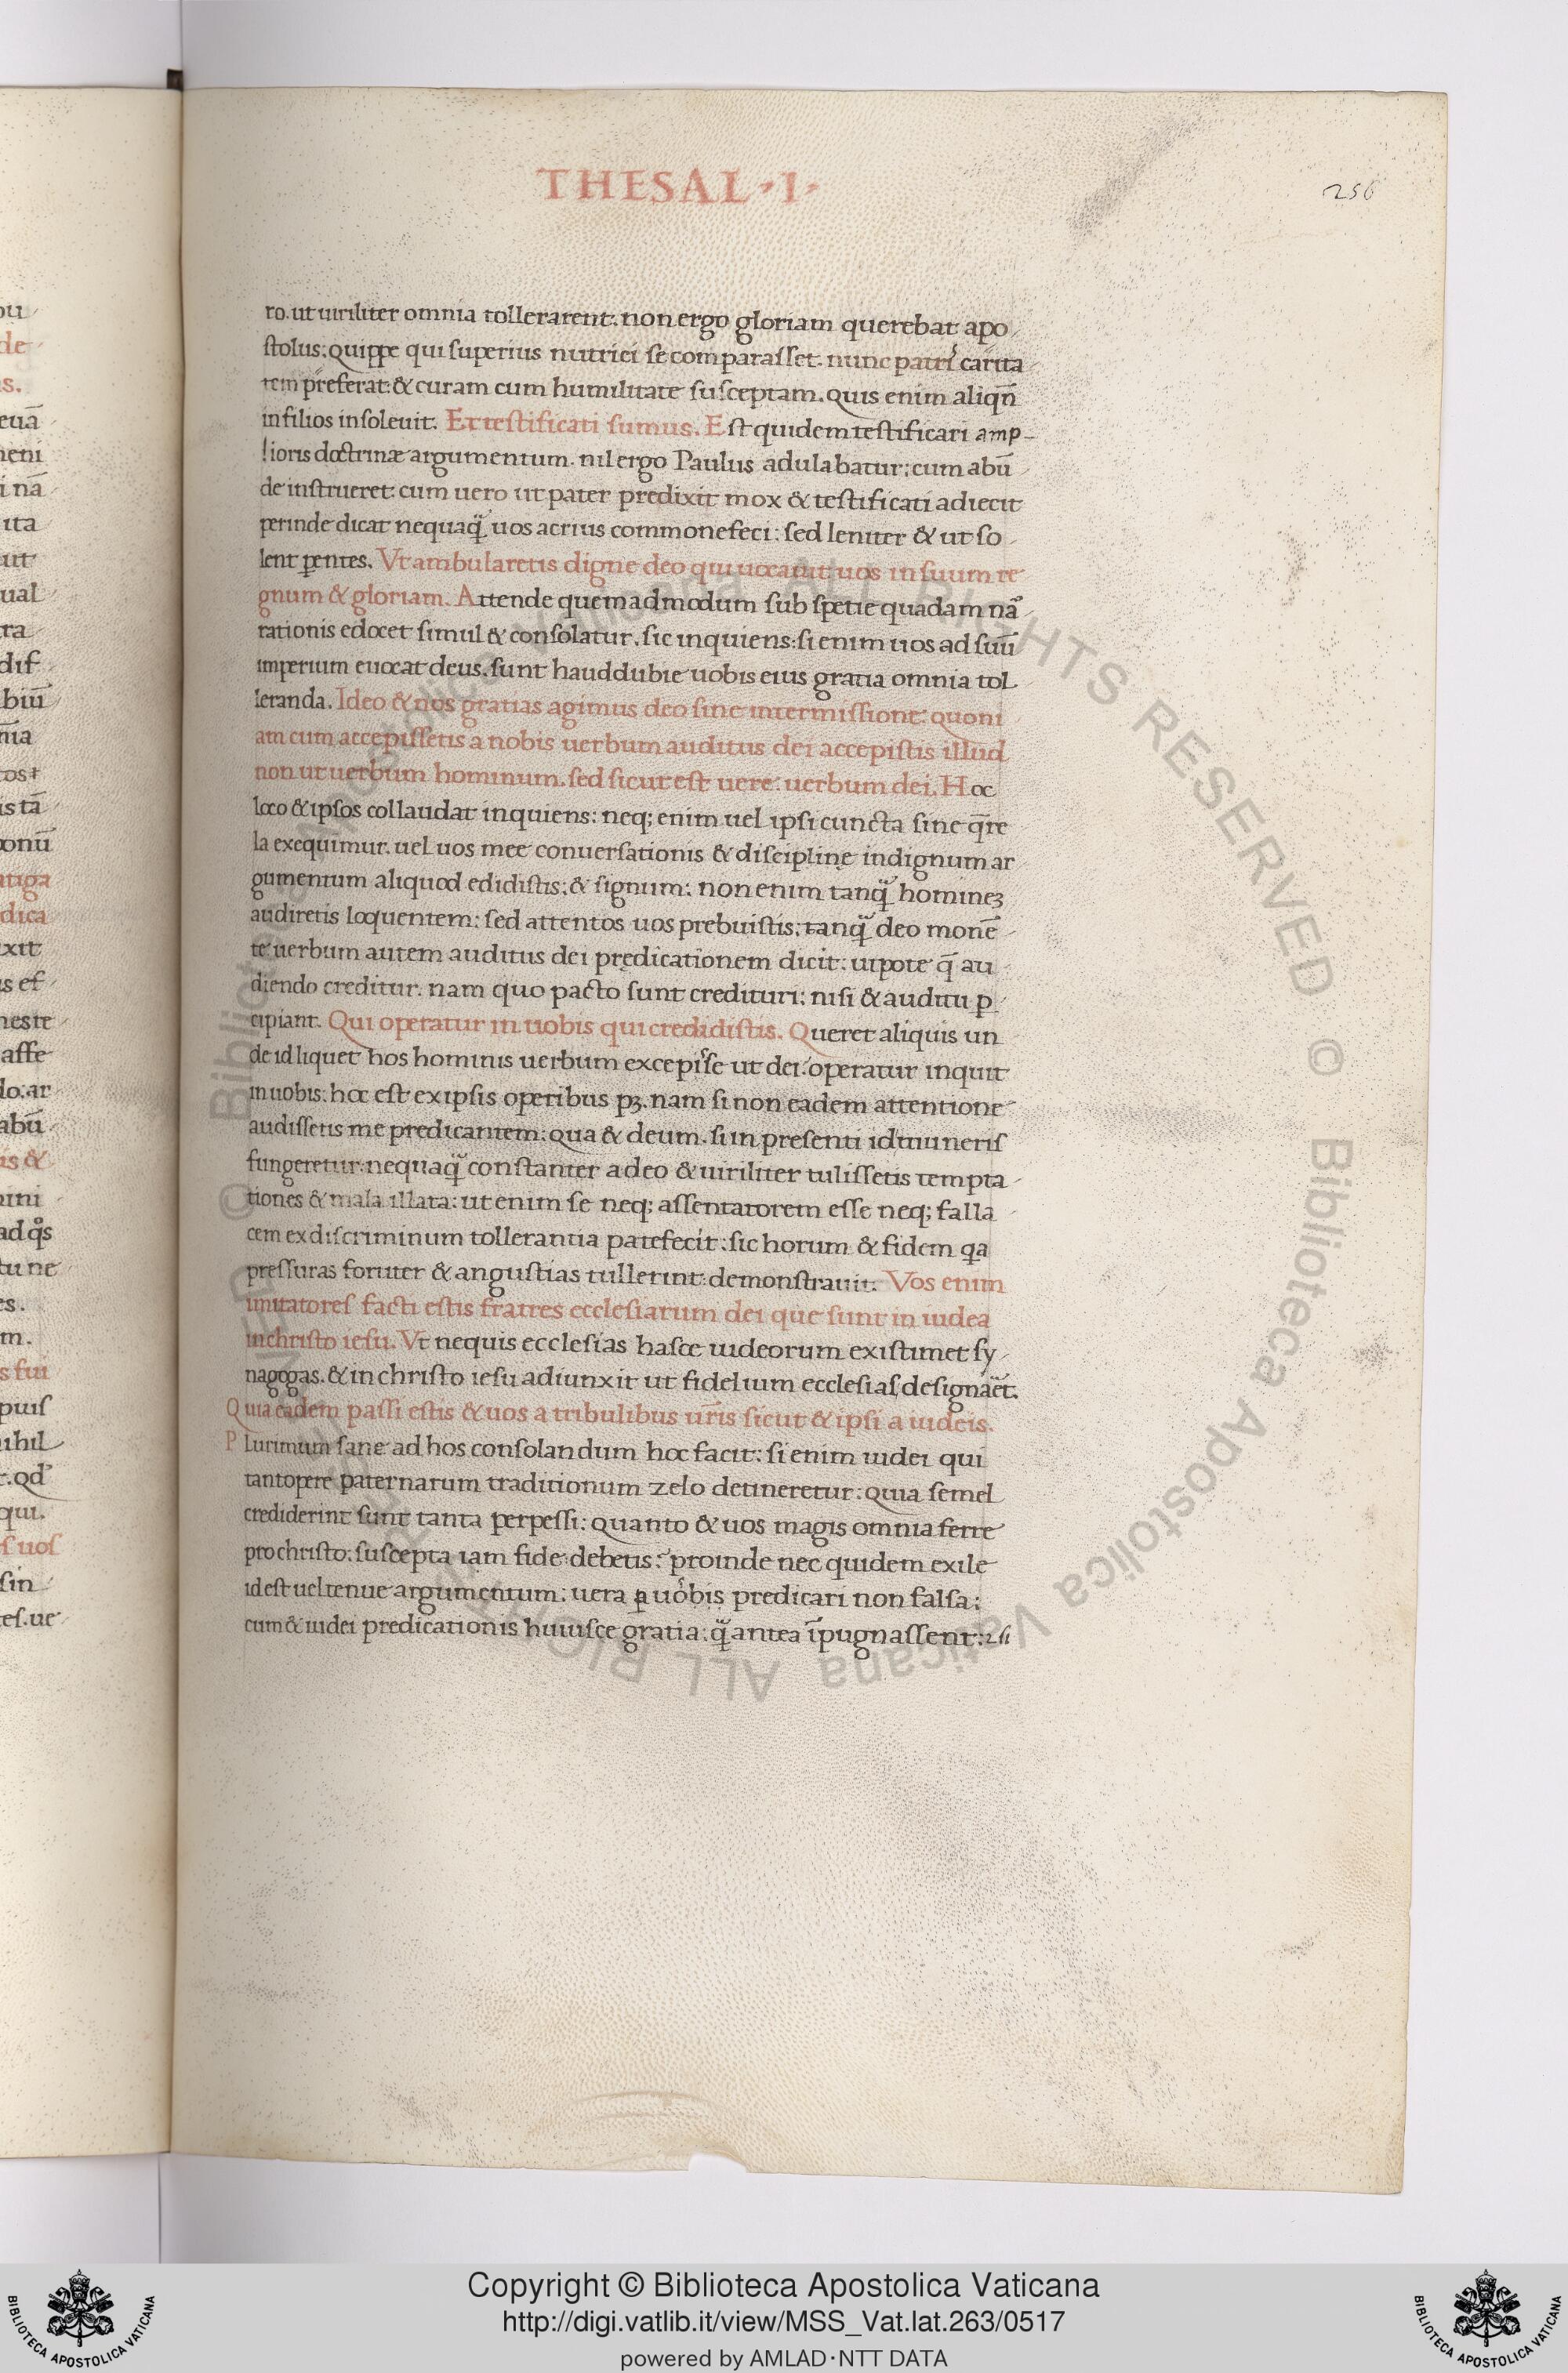 THESAL · I ·
256
ro. ut uiriliter omnia tollerarent: non ergo gloriam querebat apo
stolus: quippe qui superius nutrici se comparasset. nunc patris carita
tem preferat: & curam cum humilitate susceptam. quis enim aliqn̄
in filios insoleuit. Et testificati sumus. Est quidem testificari amp-
lioris doctrinæ argumentum. nil ergo Paulus adulabatur: cum abū
de instrueret: cum uero ut pater predixit mox & testificati adiecit
perinde dicat nequaq̃ uos acrius commonefeci: sed leniter & ut so
lent p̱entes. Vt ambularetis digne deo qui uocauit uos in suum re
gnum & gloriam. Attende quemadmodum sub spetie quadam nā
rationis edocet simul & consolatur. sic inquiens: si enim uos ad suū
imperium euocat deus. sunt haud dubie uobis eius gratia omnia tol
leranda. Ideo & nos gratias agimus deo sine intermissione: quoni
am cum accepissetis a nobis uerbum auditus dei accepistis illud
non ut uerbum hominum. sed sicut est uere: uerbum dei. Hoc
loco & ipsos collaudat inquiens: neq; enim uel ipsi cuncta sine q̄re
la exequimur. uel uos mee conuersationis & discipline indignum ar
gumentum aliquod edidistis: & signum: non enim tanq̃ homineꝫ
audiretis loquentem: sed attentos uos prebuistis: tanq̃ deo monē
te uerbum autem auditus dei predicationem dicit: utpote q̄ au
diendo creditur. nam quo pacto sunt credituri: nisi & auditu p̱
cipiant. Qui operatur in uobis qui credidistis. Queret aliquis un
de id liquet hos hominis uerbum excepisse ut dei: operatur inquit
in uobis: hoc est ex ipsis operibus pꝫ. nam si non eadem attentione
audissetis me predicantem: qua & deum. si in presenti id muneris
fungeretur: nequaq̃ constanter adeo & uiriliter tulissetis tempta
tiones & mala illata: ut enim se neq; assentatorem esse neq; falla
cem ex discriminum tollerantia patefecit: sic horum & fidem qa
pressuras fortiter & angustias tullerint: demonstrauit. Vos enim
imitatores facti estis fratres ecclesiarum dei que sunt in iudea
in christo iesu. Vt nequis ecclesias hasce iudeorum existimet sy
nagogas. & in christo iesu adiunxit ut fidelium ecclesias designaēt.
Quia eadem passi estis & uos a tribulibus ur̄is sicut & ipsi a iudeis.
Plurimum sane ad hos consolandum hoc facit: si enim iudei qui
tantopere paternarum traditionum zelo detineretur: quia semel
crediderint sunt tanta perpessi: quanto & uos magis omnia ferre
pro christo: suscepta iam fide: debetis: proinde nec quidem exile
id est uel tenue argumentum: uera a uobis predicari non falsa:
cum & iudei predicationis huiusce gratia: q̃ antea īpugnassent:
© Biblioteca Apostolica Vaticana ALL RIGHTS RESERVED © Biblioteca Apostolica Vaticana ALL RIGHTS RESERVED
Copyright © Biblioteca Apostolica Vaticana
http://digi.vatlib.it/view/MSS_Vat.lat.263/0517
powered by AMLAD·NTT DATA
BIBLIOTECA APOSTOLICA VATICANA
BIBLIOTECA APOSTOLICA VATICANA